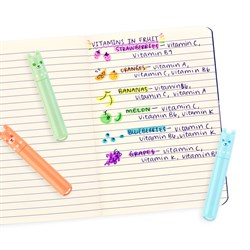 VITAMINS IN FRUIT
STRAWBERRIES - vitamin C,
vitamin B9
ORANGES - vitamin A,
vitamin C, vitamin B6
BANANAS - vitamin C,
vitamin B6
MELON - vitamin C,
vitamin K, vitamin B6
BLUEBERRIES - vitamin C,
vitamin K, vitamin B6
GRAPES - vitamin C,
vitamin K